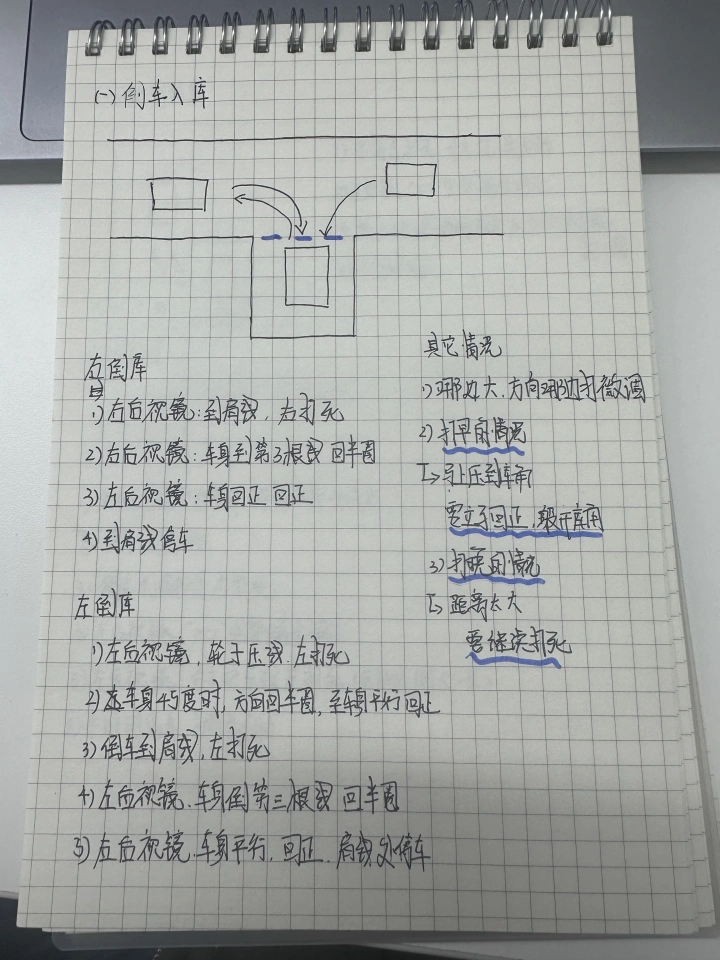 (一) 倒车入库
右倒库
1) 右后视镜：到肩线，右打死
2) 右后视镜：车身到第3根线 回半圈
3) 左右后视镜：车身回正 回正
4) 到肩线停车
左倒库
1) 左后视镜，轮子压线.左打死
2) 车身45度时，方向回半圈，至车身平行 回正
3) 倒车到肩线，左打死
4) 左后视镜.车身倒第三根线 回半圈
5) 左后视镜.车身平行，回正.肩线处停车
其它情况
1) 哪边大.方向哪边打微调
2) 打早的情况
马上压到车角
要立子回正，躲开库角
3) 打晚的情况
距离太大
要继续打死